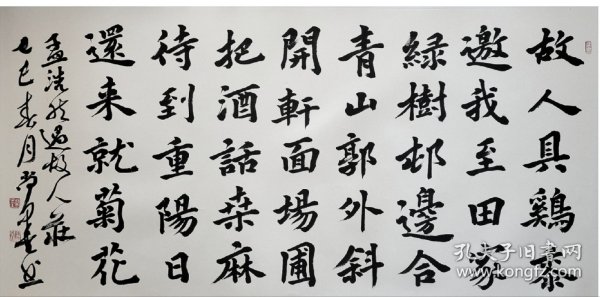 故人具鷄黍
邀我至田家
緑樹邨邊合
青山郭外斜
開軒面場圃
把酒話桒麻
待到重陽日
還来就菊花
孟浩然過故人莊
乙巳春月
孔夫子旧書网
www.kongfz.com